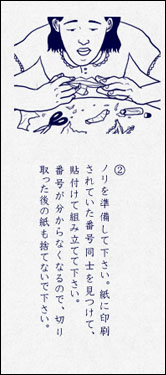 ②
ノリを準備して下さい。紙に印刷
されていた番号同士を見つけて、
貼付けて組み立てて下さい。
番号が分からなくなるので、切り
取った後の紙も捨てないで下さい。